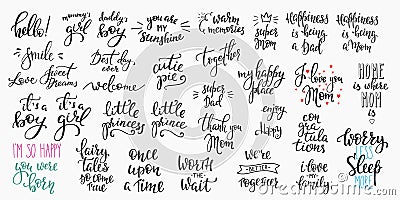 hello!
mommy's
girl
daddy's
boy
you are
MY
sunshine
warm
memories
super
Mom
Happiness
is being
a Dad
Happiness
is being
a Mom
Smile
Love
Sweet
Dreams
Best day
ever
welcome
cutie
pie
together
my happy
place
I love you
Mom
HOME
is where
MOM
is
it's a
boy
it's a
girl
little
princess
little
prince
super
Dad
thank you
Mom
enjoy
Happy
con
gra tu
lations
I'M SO HAPPY
you were
born
fairy
tales
do come
true
once
upon
a Time
WORTH
the
wait
we're
BETTER
together
i love
my
family
Worry
LESS
Sleep
MORE